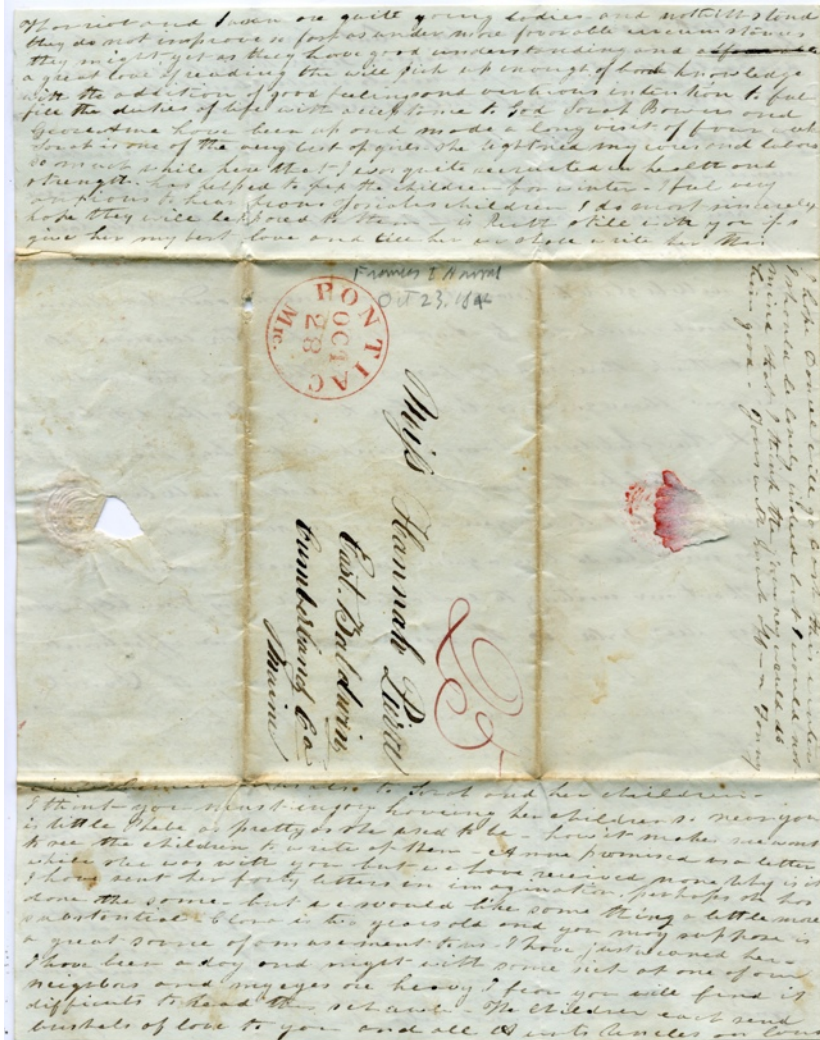 Harriet and Susan are quite young ladies and notwithstand
they do not improve so fast as under more favorable circumstances
they might yet as they have good understanding and
a great love of reading the will pick up enough of book knowledge
with the addition of good feelings and virtuous intention to ful
fill the duties of life with acceptance to God Sarah Bowers and
have been up and made a long visit of four week
Sarah is one of the very best of girls she lightened my cares and labors
so much while here that I was quite recruited in health and
strength. has helped to fix the children for winter - I feel very
anxious to hear from Josiahs children I do most sincerely
hope they will be spared to them - is Ruth still with you if so
give her my best love and tell her we shall write her this
Oct 23, 18
PONTIAC
Mic.
OCT
28
Miss Hannah
East. Baldwin
Cumberland Co
Maine
25
I hope Daniel will go back this winter
I should be lonely indeed but I would not
mind that I think the journey would do
him good - Yours with much
to Sarah and her children -
I think you must enjoy haveing her children so near you
is little as pretty as she used to be - how it makes me want
to see the children to write of them - Anne promised us a letter
while she was with you but we have received none why is it
I have sent her forty letters in imagination, perhaps she has
done the same - but we would like some thing a little more
substantial - Clara is two years old and you may suppose is
a great source of amusement to us I have just weaned her -
I have been a day and night with some sick at one of our
neighbors and my eyes are heavy I fear you will find it
difficult to read this scrawl - The children each send
bushels of love to you and all Aunts Uncles